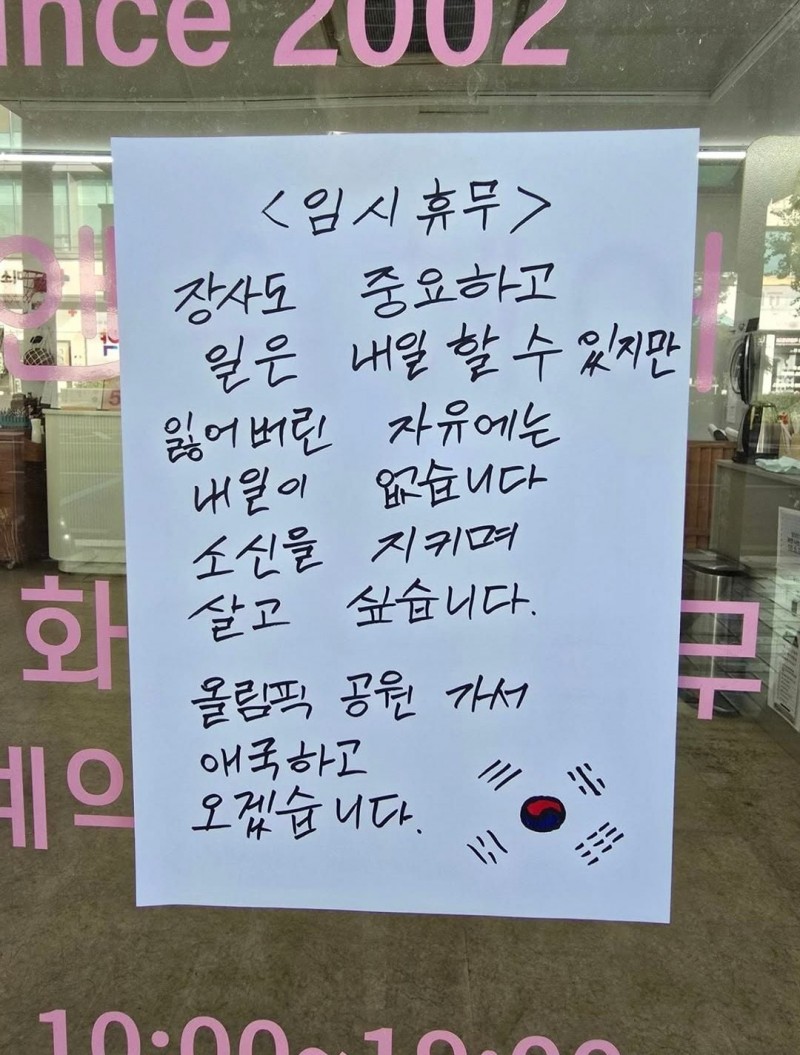 ince 2002
<임시휴무>
장사도 중요하고
일은 내일 할 수 있지만
잃어버린 자유에는
내일이 없습니다
소신을 지키며
살고 싶습니다.
화 무
올림픽 공원 가서
애국하고
예의
오겠습니다.
10:00~19:00